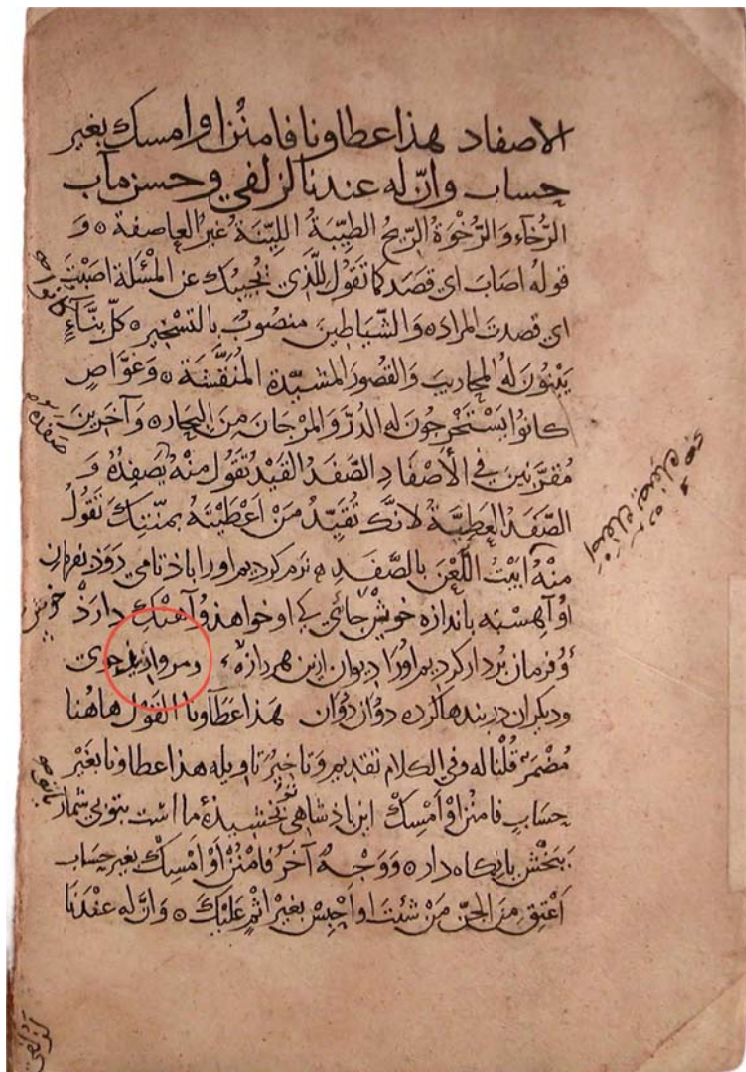 الاصفاد هذا عطاونا فامنن او امسك بغير
حساب وانّ له عندنا لزلفي وحسن مآب
الرُّخآء وَالرَّخْوَةُ الرّيحُ الطيّبَةُ اللّيّنَةُ غيرُ العاصفة ٥ وَ
قولهُ اصَابَ اي قصَدَ كما تقُول للَّذي يُجيبُك عن المسْئلة اصَبْتَ
اي قصدتَ المرادَ ٥ وَالشّيَاطينَ منصُوبٌ بالتسْخير ٥ كلّ بنّآءٍ
يَبْنُونَ لهُ المحاريبَ وَالقصُورَ المشيّدة المُنَقَّشَة ٥ وَغوّاصٍ
كانوُا يَسْتَخْرجُونَ له الدُرّ وَالمرْجَانَ منَ البحَار ٥ وَآخرينَ
مُقرّنينَ في الأصْفَادِ الصّفَدُ القَيْدُ تقُولُ منْهُ يَصْفِدُهُ وَ
الصّفَدُ العَطِيّةُ لانّكَ تُقيّدُ مَنْ اَعْطَيْتَهُ بمنّتِكَ تَقُولُ
منْهُ ابَيْتَ اللّعْنَ بالصّفَدِ ٥ نرم كرديم اورا باد تا مي رَوَد بفرمان
اوُ آهسْته باندازه خويْش جائي كي او خواهد وُ آهنْك دارَدْ خوش
وُ فرمان بُردار كرديم اورا ديوان ازين هر دازه حوى
وديكران در بندها كرده دوُان دوُان هَذا عَطَآونا القَوْل هاهُنا
مُضْمَرٌ قُلْنا له وفي الكلام تقديم وَتاخيرٌ تاويله هذا عطاونا بغَيْر
حسَابٍ فامنُنْ اوْ اَمْسِكْ اين پادشاهي بخشيدهٔ ما است بتو بي شمار
ببَخْش يا نكاه دار ٥ وَوَجْهٌ آخرُ فامْنُنْ اوْ اَمْسِكْ بغيْر حِسَاب
اَعْتِق مِنَ الجنّ مَنْ شئتَ او احْبِسْ بغيْر اثْمٍ عَلَيْكَ ٥ وَانّ له عنْدَنَا